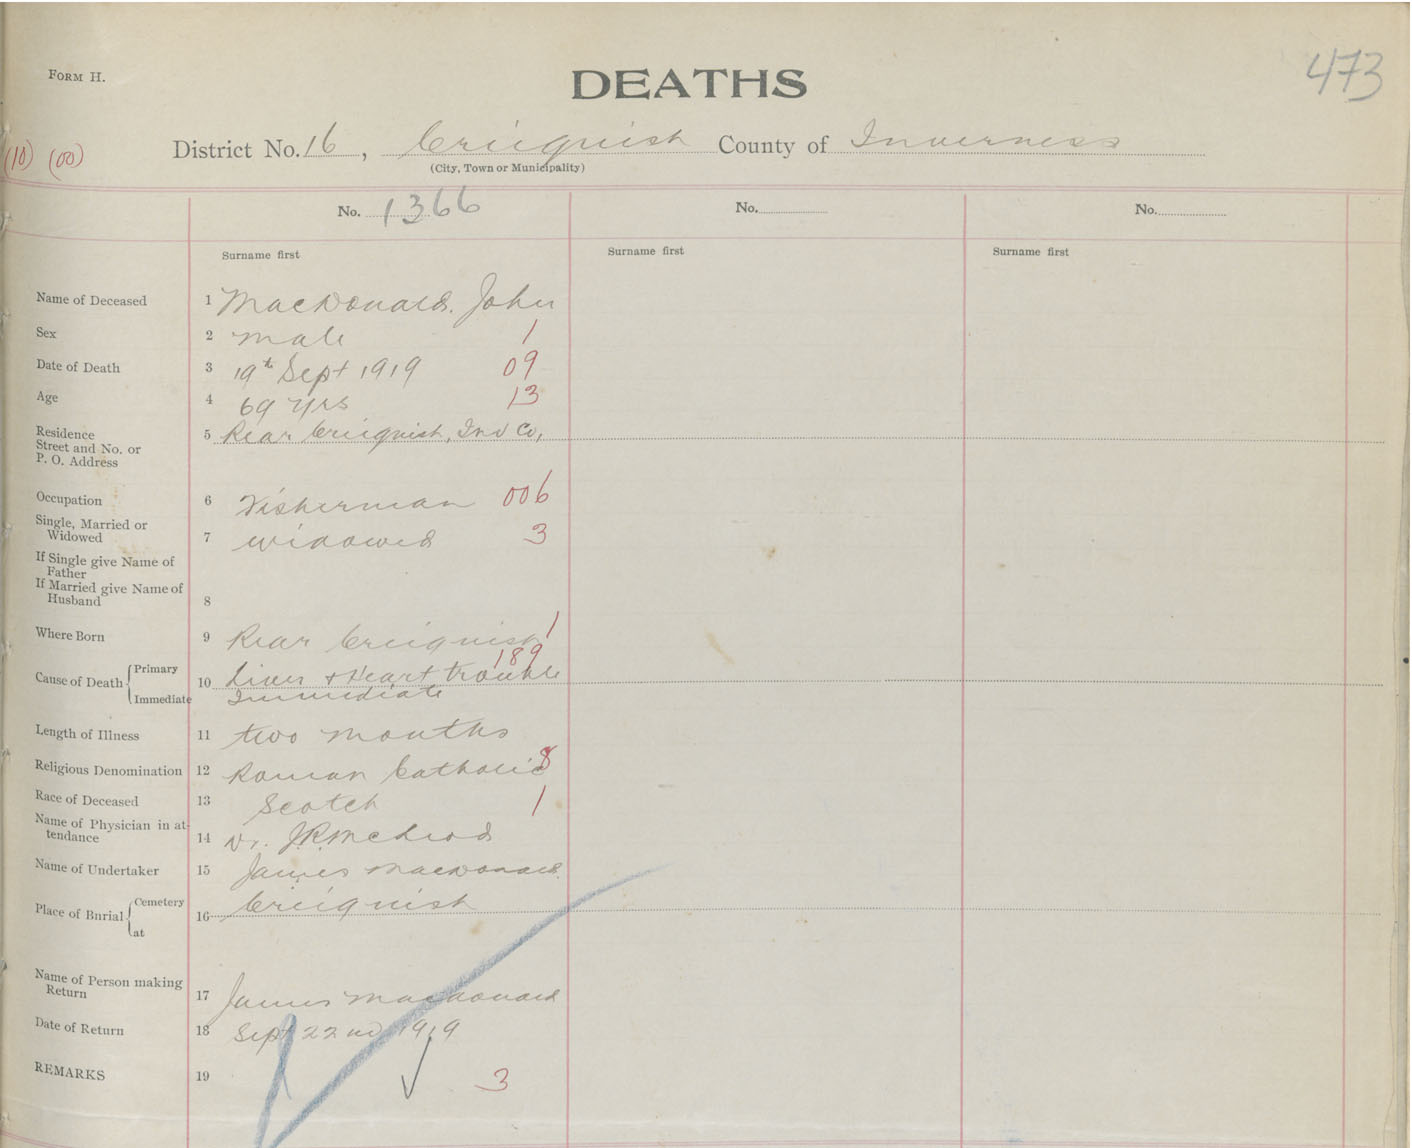 FORM H.
DEATHS
473
(10) (00)
District No. 16, Criegnish County of Inverness
(City, Town or Municipality)
No. 1366
No.
No.
Surname first
Surname first
Surname first
Name of Deceased 1 MacDonald. John
Sex 2 male 1
Date of Death 3 19th Sept 1919 09
Age 4 69 yrs 13
Residence
Street and No. or
P. O. Address
5 Rear Criegnish, Inv Co,
Occupation 6 Fisherman 006
Single, Married or
Widowed 7 widowed 3
If Single give Name of
Father
If Married give Name of
Husband 8
Where Born 9 Rear Criegnish 1
189
Cause of Death Primary
Immediate
10 Liver & Heart trouble
Immediate
Length of Illness 11 two months
Religious Denomination 12 Roman Catholic 8
Race of Deceased 13 Scotch 1
Name of Physician in at-
tendance 14 Dr. J.R. McLeod
Name of Undertaker 15 James MacDonald.
Place of Burial Cemetery
at
16 Criegnish
Name of Person making
Return 17 James MacDonald
Date of Return 18 Sept 22nd 1919
REMARKS 19 3